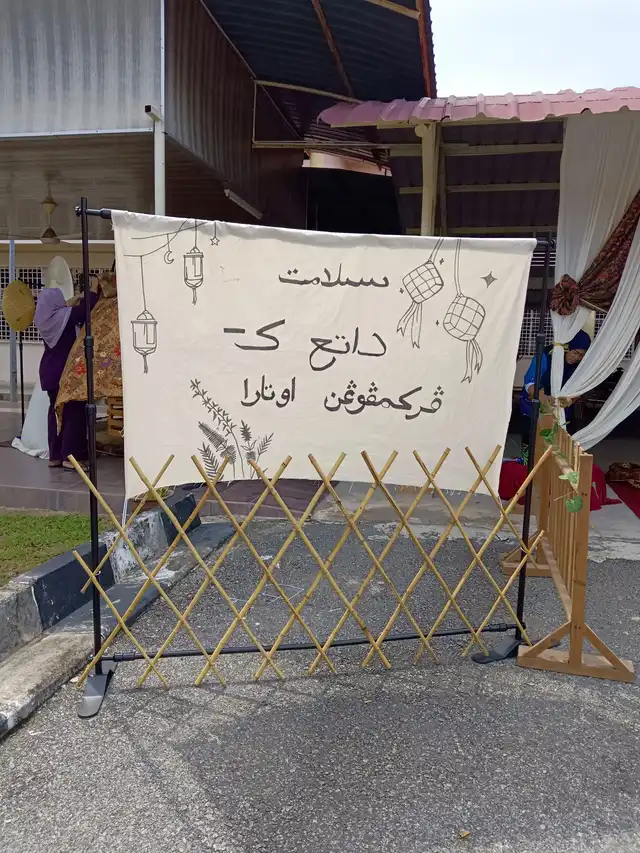 سلامت
داتع ك-
ڤركمڤوڠن اوتارا